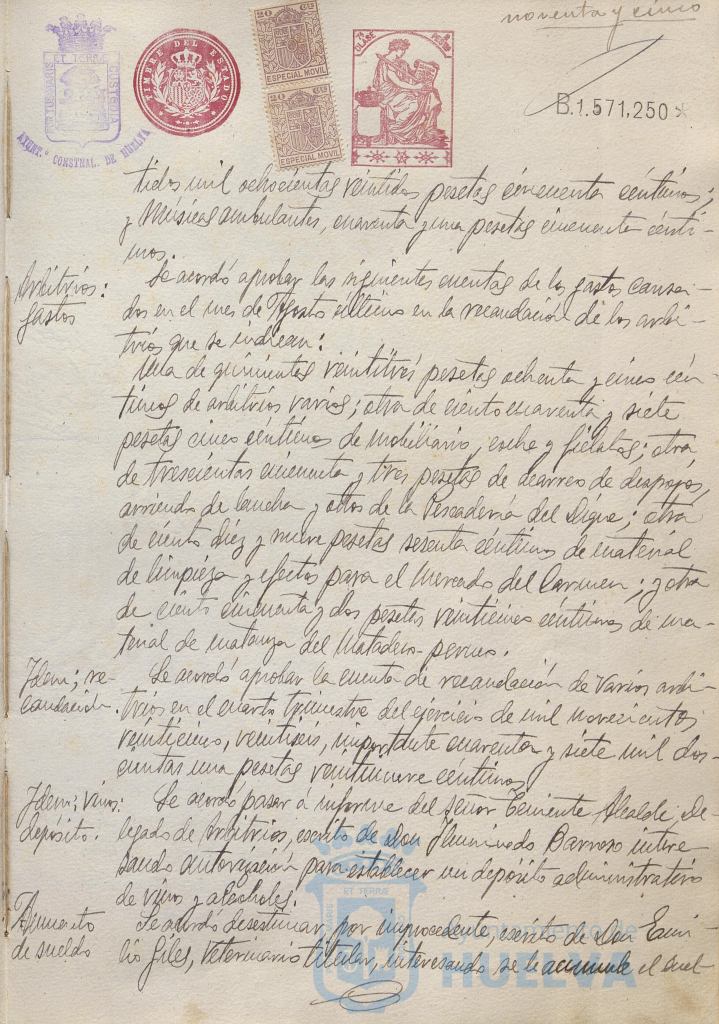 noventa y cinco
PORTUS MARIS ET TERRÆ CUSTODIA
AYUNT.º CONSTNAL. DE HUELVA
TIMBRE DEL ESTADO
20 CS
ESPECIAL MOVIL
20 CS
ESPECIAL MOVIL
CLASE
B.1.571,250 *
tidos mil ochocientas veintidos pesetas cincuenta céntimos;
y Músicas ambulantes, cuarenta y una pesetas cincuenta cénti-
mos.
Arbitrios:
gastos
Se acordó aprobar las siguientes cuentas de los gastos causa-
dos en el mes de Agosto último en la recaudación de los arbi-
trios que se indican:
Una de quinientas veintitrés pesetas ochenta y cinco cén-
timos de arbitrios varios; otra de ciento cuarenta y siete
pesetas cinco céntimos de mobiliario, coche y fielatos; otra
de trescientas cincuenta y tres pesetas de acarreo de despojos,
arriendo de lancha y otros de la Pescadería del Dique; otra
de ciento diez y nueve pesetas sesenta céntimos de material
de limpieza y efectos para el Mercado del Carmen; y otra
de ciento cincuenta y dos pesetas veinticinco céntimos de ma-
terial de matanza del Matadero
Idem; re-
caudación.
Se acordó aprobar la cuenta de recaudación de Varios arbi-
trios en el cuarto trimestre del ejercicio de mil novecientos
veinticinco, veintiseis, importante cuarenta y siete mil dos-
cientas una pesetas veintinueve céntimos
Idem; vinos:
depósito.
Se acordó pasar á informe del Señor Teniente Alcalde De-
legado de Arbitrios, escrito de Don Iluminado Barroso intere
sando autorización para establecer un depósito administrativo
de vinos y alcoholes.
Aumento
de sueldo
Se acordó desestimar, por improcedente, escrito de Don Emi-
lio Giles, Veterinario titular, interesando se le acumule el suel-
ET TERRÆ
Ayuntamiento de
HUELVA